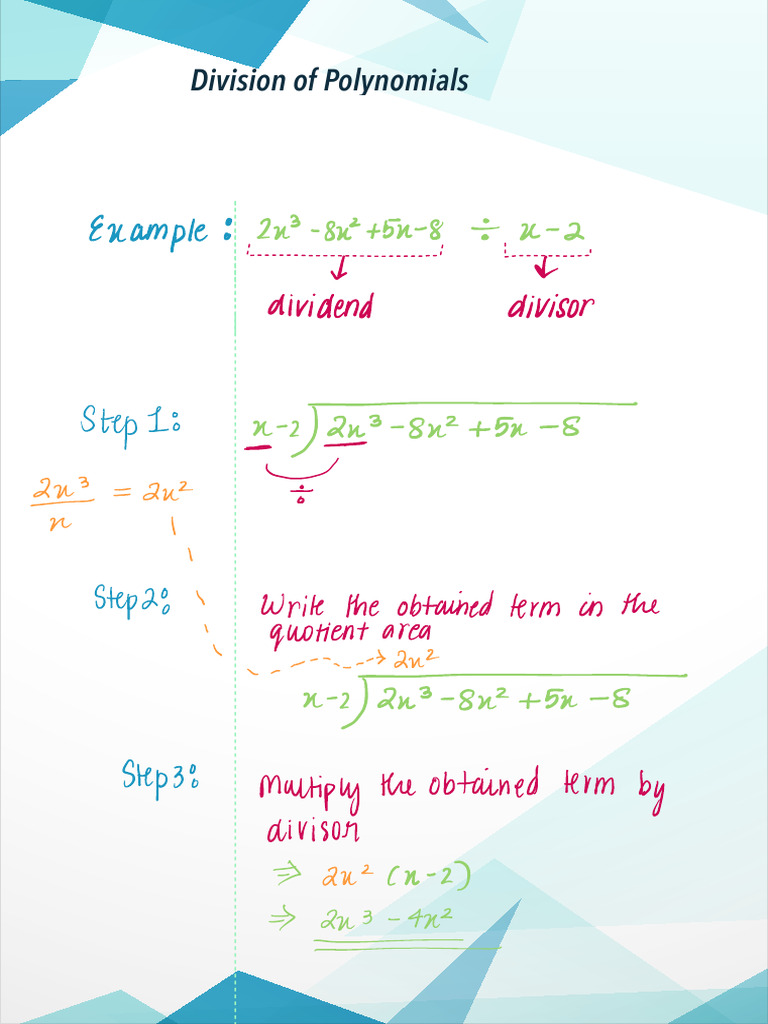 Division of Polynomials
Example: 2x³ - 8x² + 5x - 8 ÷ x - 2
dividend divisor
Step 1: x - 2 ) 2x³ - 8x² + 5x - 8
÷
2x³/x = 2x²
Step 2: Write the obtained term in the
quotient area
2x²
x - 2 ) 2x³ - 8x² + 5x - 8
Step 3: Multiply the obtained term by
divisor
⇒ 2x² (x - 2)
⇒ 2x³ - 4x²